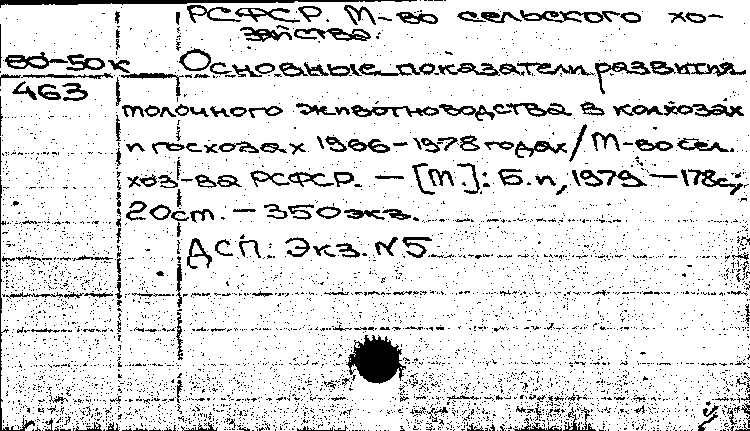 РСФСР. М-во сельского хо-
зяйства.
80-50к Основные показатели развития
463
молочного животноводства в колхозах
и госхозах 1966-1978 годах/М-во сел.
хоз-ва РСФСР. — [М.]: Б.и, 1979 — 178с;
20см. — 350экз.
ДСП. Экз. №5